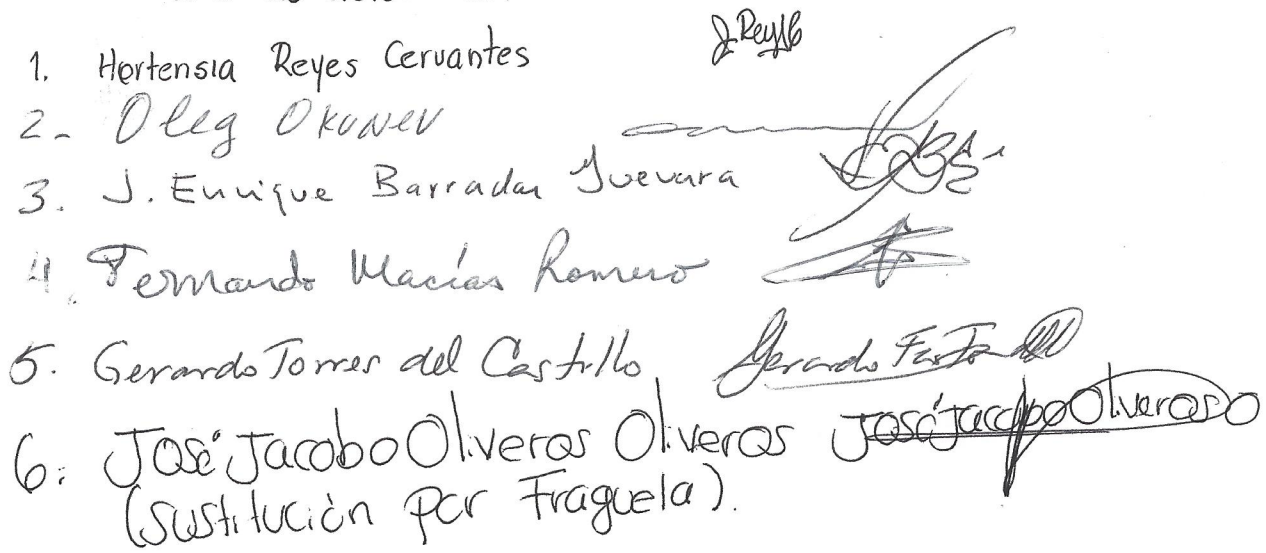 1. Hortensia Reyes Cervantes
2- Oleg Okunev
3. J. Enrique Barradas Guevara
4. Fernando Macías Romero
5. Gerardo Torres del Castillo Gerardo F. Torres del
6. José Jacobo Oliveros Oliveros José Jacobo Oliveros O
(sustitución por Fraguela).